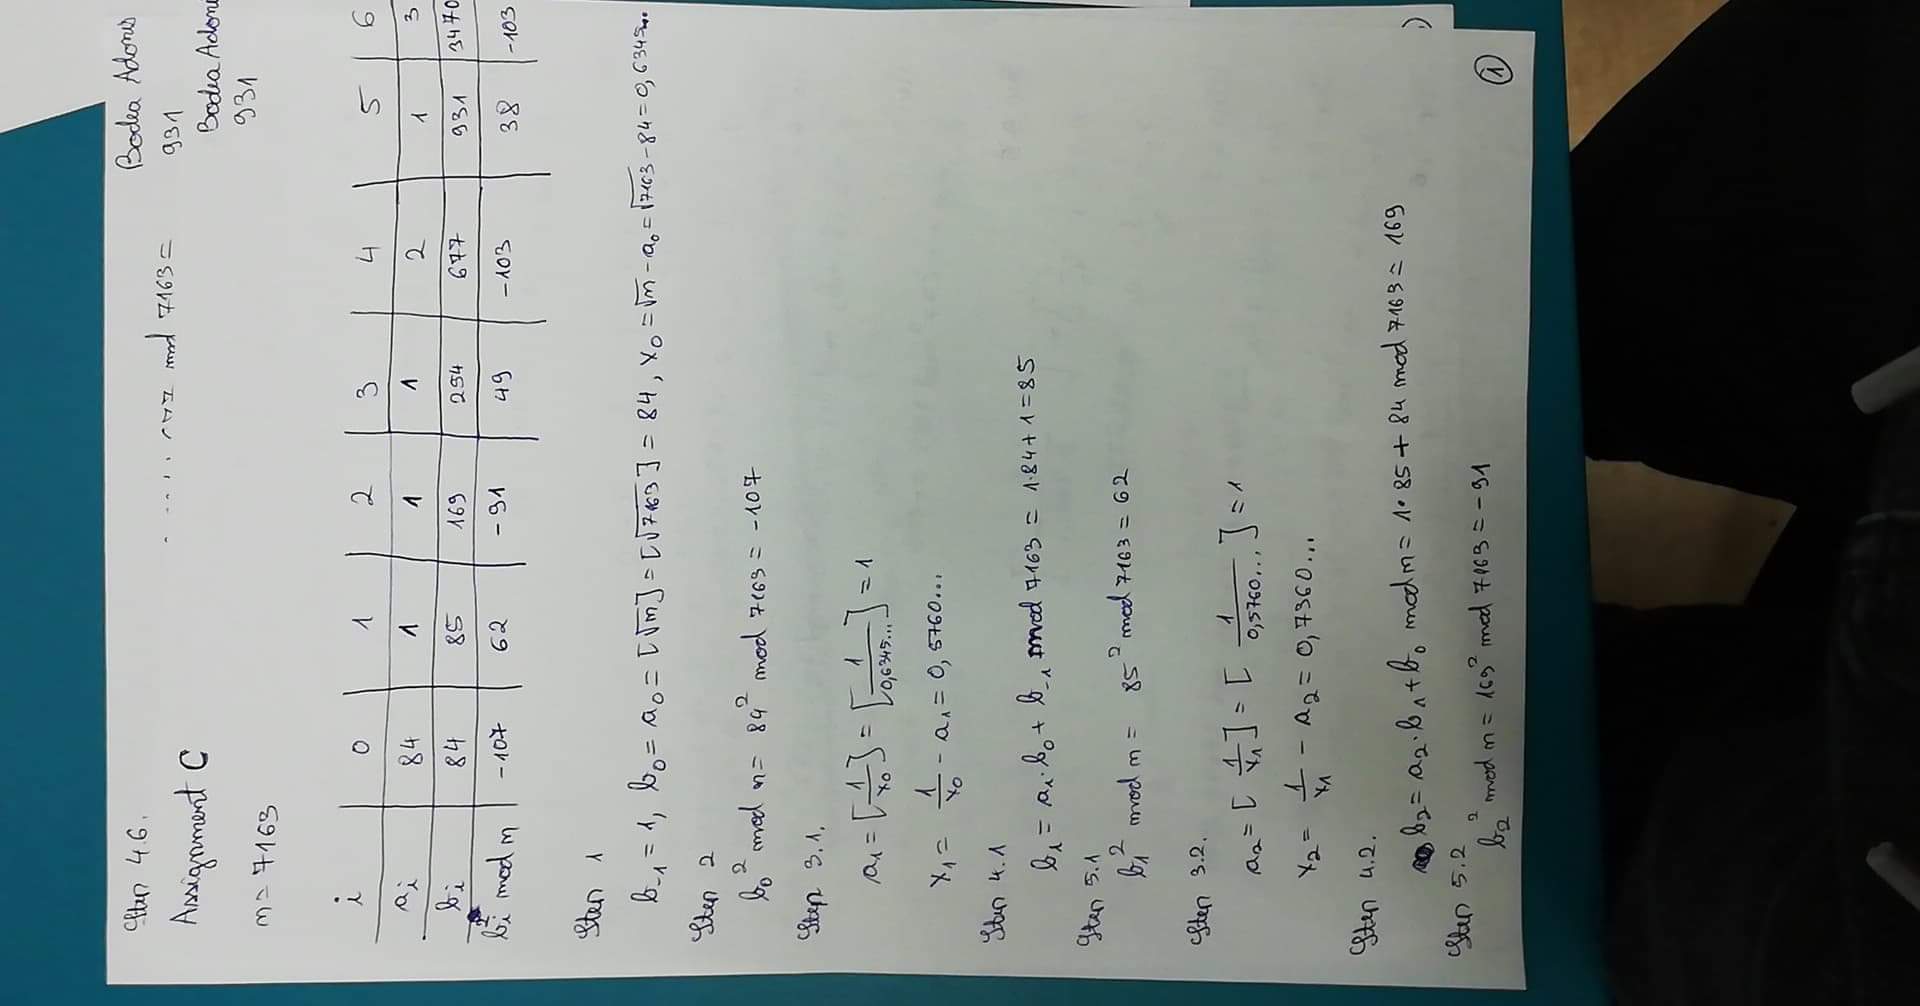 Step 4.6.
Bodea Adonis
mod 7163 =
931
Assignment C
Bodea Adoni
931
n = 7163
i 0 1 2 3 4 5 6
ai 84 1 1 1 2 1 3
bi 84 85 169 254 677 931 3470
bi² mod n -107 62 -91 49 -103 38 -103
Step 1
b₋₁ = 1, b₀ = a₀ = [√n] = [√7163] = 84, x₀ = √n - a₀ = √7163 - 84 = 0,6345...
Step 2
b₀² mod n = 84² mod 7163 = -107
Step 3.1.
a₁ = [1/x₀] = [1/0,6345...] = 1
x₁ = 1/x₀ - a₁ = 0,5760...
Step 4.1
b₁ = a₁·b₀ + b₋₁ mod 7163 = 1·84 + 1 = 85
Step 5.1
b₁² mod n = 85² mod 7163 = 62
Step 3.2.
a₂ = [1/x₁] = [1/0,5760...] = 1
x₂ = 1/x₁ - a₂ = 0,7360...
Step 4.2.
b₂ = a₂·b₁ + b₀ mod n = 1·85 + 84 mod 7163 = 169
Step 5.2
b₂² mod n = 169² mod 7163 = -91
1